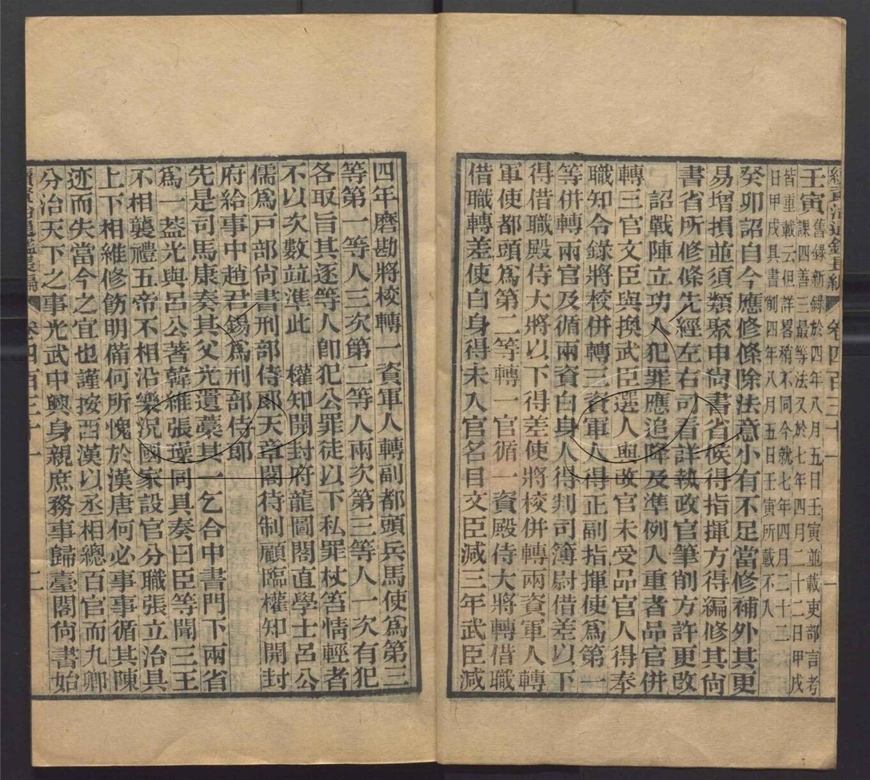 續資治通鑑長編 卷四百三十一 一
壬寅舊錄新錄於四年八月五日壬寅並載吏部言考
課四善三最等法又於七年四月二十二日甲戌
皆重載云但詳畧稍不同今就七年四月二十二
日甲戌具書削四年八月五日壬寅所載不入
癸卯詔自今應修條除法意小有不足當修補外其更
易增損並須類聚申尙書省候得指揮方得編修其尙
書省所修條先經左右司看詳執政官筆削方許更改
詔戰陣立功人犯罪應追降及準例入重者品官併
轉三官文臣與換武臣選人與改官未受品官人得奉
職知令錄將校併轉三資軍人得正副指揮使爲第一
等併轉兩官及循兩資白身人得判司簿尉借差以下
得借職殿侍大將以下得差使將校併轉兩資軍人轉
軍使都頭爲第二等轉一官循一資殿侍大將轉借職
借職轉差使白身得未入官名目文臣減三年武臣減
四年磨勘將校轉一資軍人轉副都頭兵馬使爲第三
等第一等人三次第二等人兩次第三等人一次有犯
各取旨其逐等人卽犯公罪徒以下私罪杖笞情輕者
不以次數竝準此 權知開封府龍圖閣直學士呂公
儒爲戸部尙書刑部侍郎天章閣待制顧臨權知開封
府給事中趙君錫爲刑部侍郎
先是司馬康奏其父光遺藁其一乞合中書門下兩省
爲一葢光與呂公著韓維張璪同具奏曰臣等聞三王
不相襲禮五帝不相沿樂況國家設官分職張立治具
上下相維修飭明備何所愧於漢唐何必事事循其陳
迹而失當今之宜也謹按西漢以丞相總百官而九卿
分治天下之事光武中興身親庶務事歸臺閣尙書始
續資治通鑑長編 卷四百三十一 二